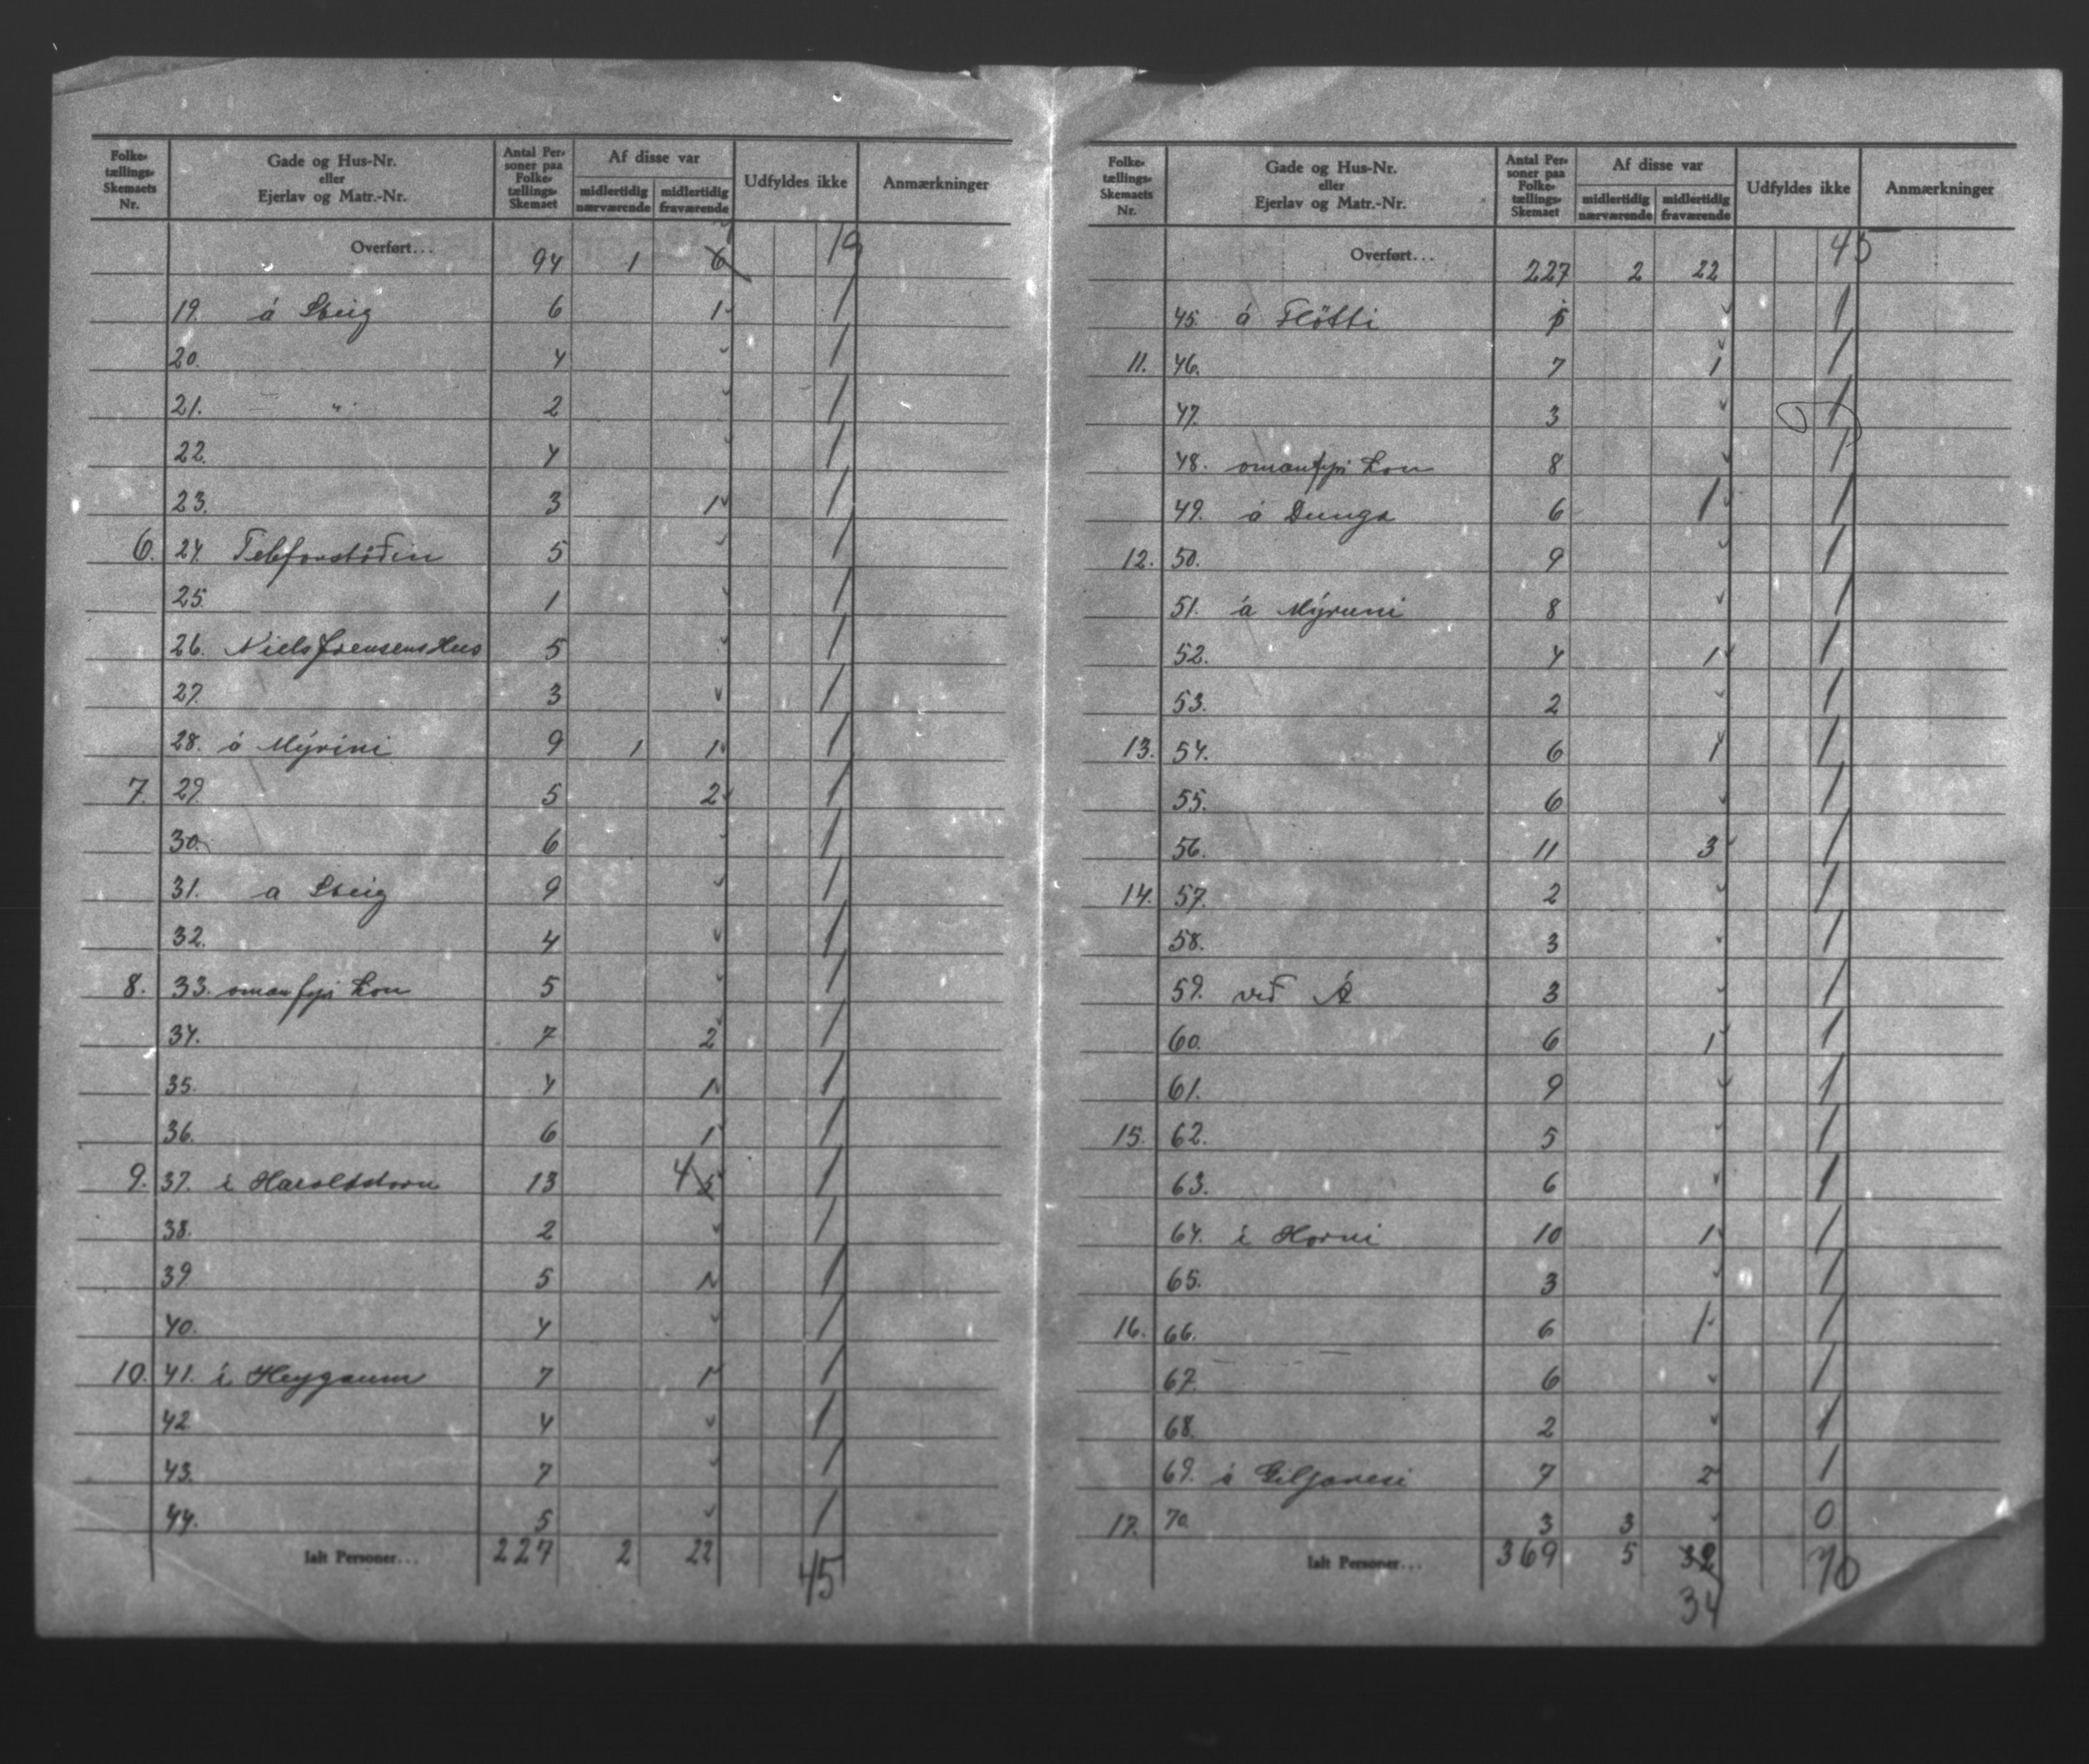 Folke-
tællings-
Skemaets
Nr.
Gade og Hus-Nr.
eller
Ejerlav og Matr.-Nr.
Antal Per-
soner paa
Folke-
tællings-
Skemaet
Af disse var
midlertidig
nærværende
midlertidig
fraværende
Udfyldes ikke
Anmærkninger
Overført... 94 1 6 19
19. á Steig 6 1 1
20. 4 1
21. " 2 1
22. 4 1
23. 3 1 1
6. 24. Telefonstöðin 5 1
25. 1 1
26. Niels Joensens Hus 5 1
27. 3 1
28. á Mýrini 9 1 1 1
7. 29. 5 2 1
30. 6 1
31. a Steig 9 1
32. 4 1
8. 33. omanfyri Lon 5 1
34. 7 2 1
35. 4 1 1
36. 6 1 1
9. 37. í Haraldstovu 13 4 1
38. 2 1
39. 5 1 1
40. 4 1
10. 41. í Heygaum 7 1 1
42. 4 1
43. 7 1
44. 5 1
Ialt Personer... 227 2 22 45
Folke-
tællings-
Skemaets
Nr.
Gade og Hus-Nr.
eller
Ejerlav og Matr.-Nr.
Antal Per-
soner paa
Folke-
tællings-
Skemaet
Af disse var
midlertidig
nærværende
midlertidig
fraværende
Udfyldes ikke
Anmærkninger
Overført... 227 2 22 45
45. á Fløtti 1
11. 46. 7 1 1
47. 3 1
48. omanfyri Lon 8 1
49. á Dunga 6 1 1
12. 50. 9 1
51. á Mýruni 8 1
52. 4 1 1
53. 2 1
13. 54. 6 1 1
55. 6 1
56. 11 3 1
14. 57. 2 1
58. 3 1
59. við Á 3 1
60. 6 1 1
61. 9 1
15. 62. 5 1
63. 6 1
64. í Horni 10 1 1
65. 3 1
16. 66. 6 1 1
67. 6 1
68. 2 1
69. á Giljanesi 7 2 1
17. 70. 3 3 0
Ialt Personer... 369 5 32 70
34